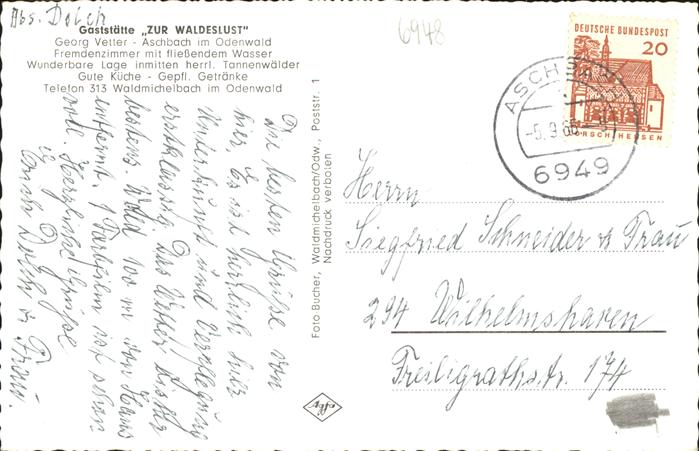 Abs. Dolch
Gaststätte „ZUR WALDESLUST"
Georg Vetter - Aschbach im Odenwald
Fremdenzimmer mit fließendem Wasser
Wunderbare Lage inmitten herrl. Tannenwälder
Gute Küche - Gepfl. Getränke
Telefon 313 Waldmichelbach im Odenwald
6948
DEUTSCHE BUNDESPOST
20
LORSCH/HESSEN
ASCHBACH
-5.9.66
6949
Die besten Grüße von
hier. Es ist herrlich hier
Unterkunft und Verpflegung
erstklassig. Das Wetter bisher
bestens. Wald 100 m von Haus
entfernt. 1 Farbfilm ist schon
voll. Herzliche Grüße
Dolch u. Frau
Foto Bucher, Waldmichelbach/Odw., Poststr. 1
Nachdruck verboten
Herrn
Siegfried Schneider u Frau
294 Wilhelmshaven
Freiligrathstr. 174
Agfa